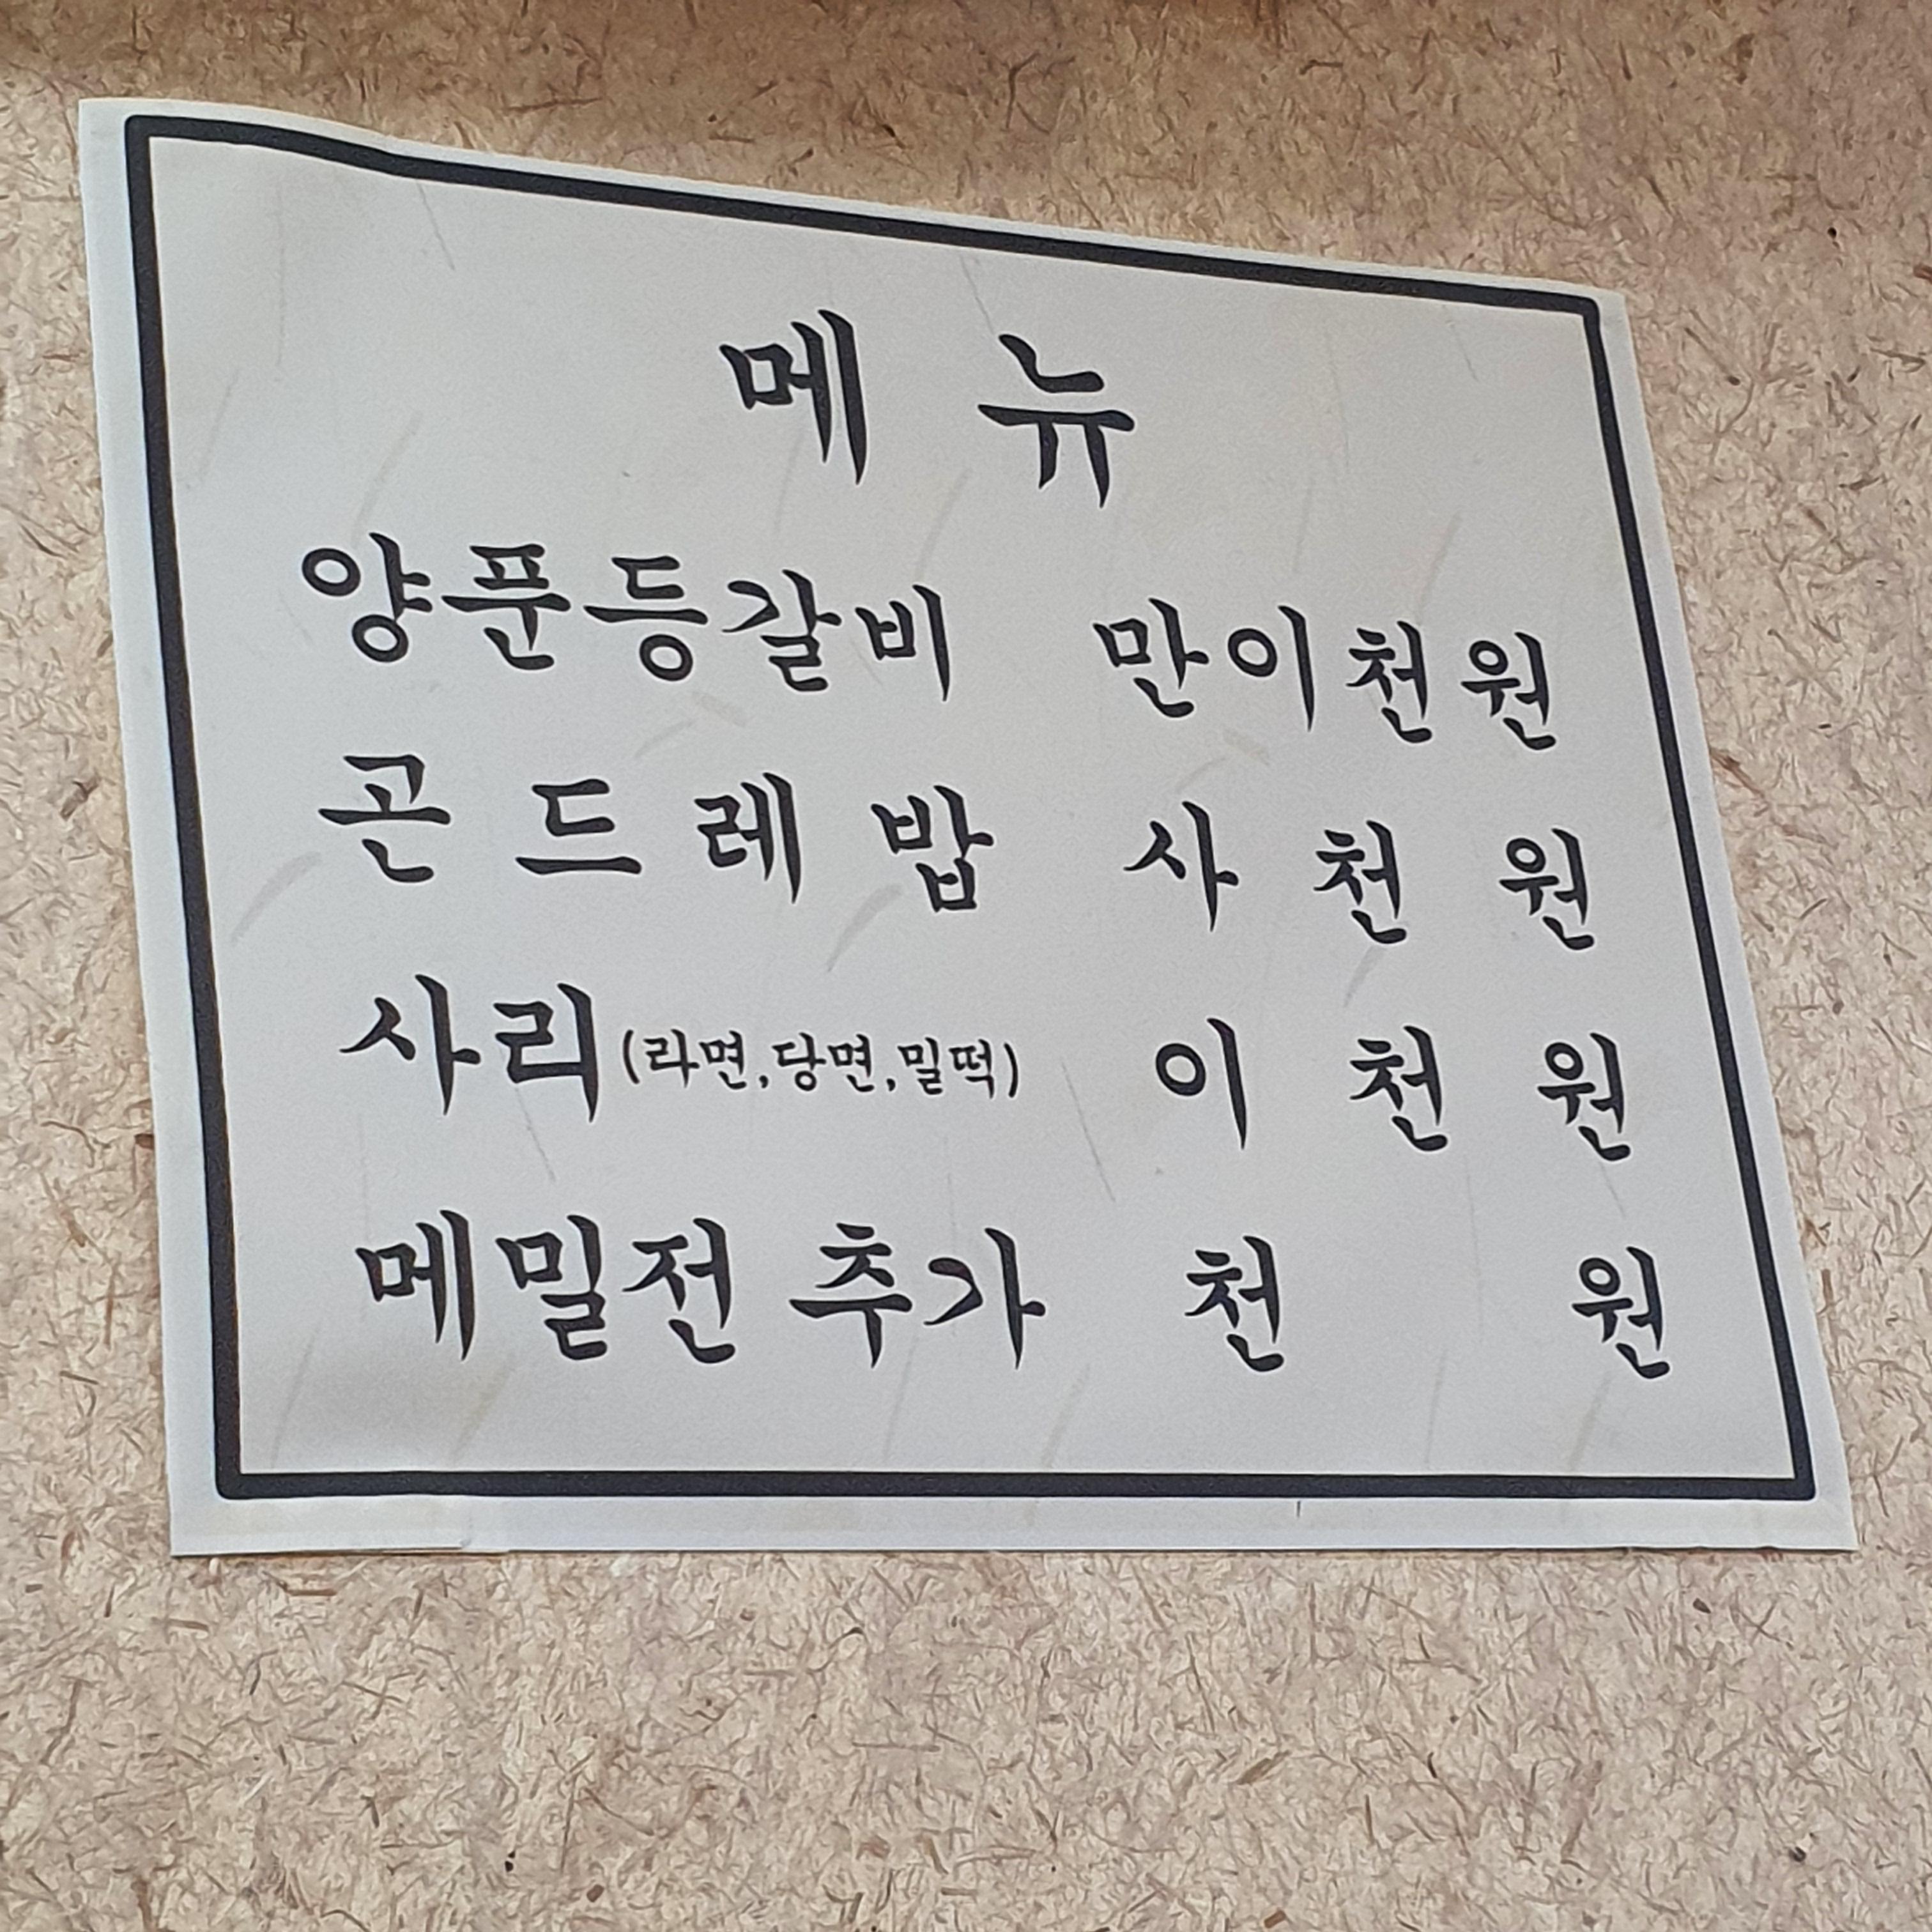 메 뉴
양푼등갈비 만이천원
곤 드 레 밥 사 천 원
사리(라면,당면,밀떡) 이 천 원
메밀전 추가 천 원